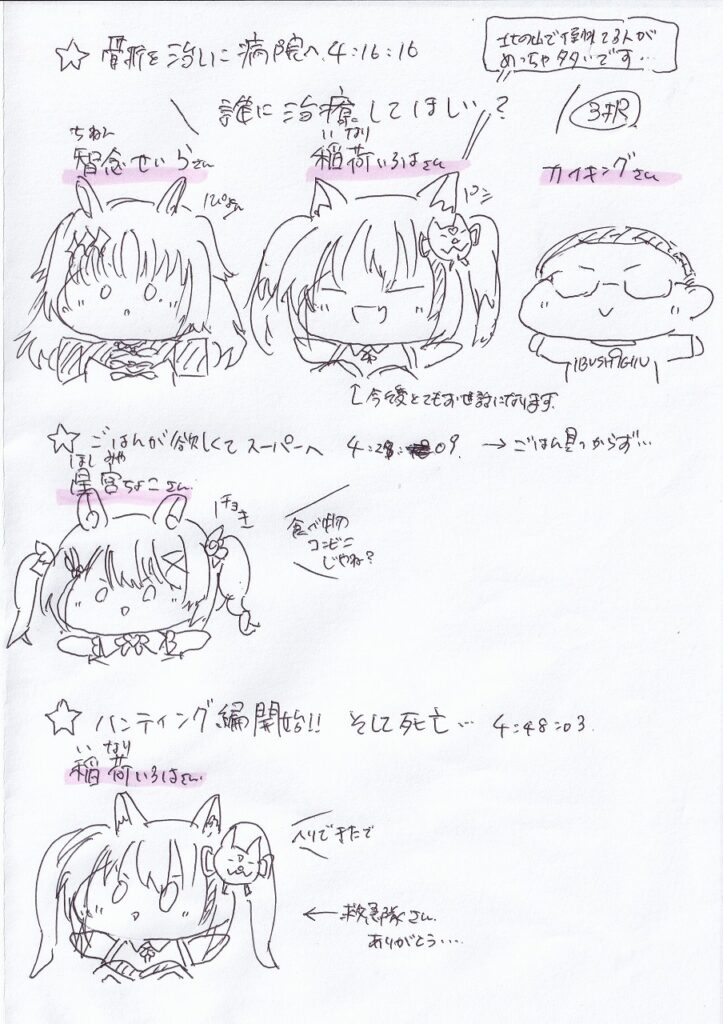 ☆ 骨折を治しに病院へ 4:16:16
北の山で倒れてる人が
めっちゃ多いです…
誰に治療してほしい?
3択
ちねん
智念せいらさん
いなり
稲荷いろはさん
カイキングさん
ぴょん
IBUSHIGIN
↑今後とてもお世話になります。
☆ ごはんが欲しくてスーパーへ 4:28: 09 → ごはん見つからず…
ほしみや
星宮ちょこさん
食べ物の
コンビニ
じゃね?
☆ ハンティング編開始!! そして死亡… 4:48:03
いなり
稲荷いろはさん
ヘリできたで
← 救急隊さん
ありがとう…